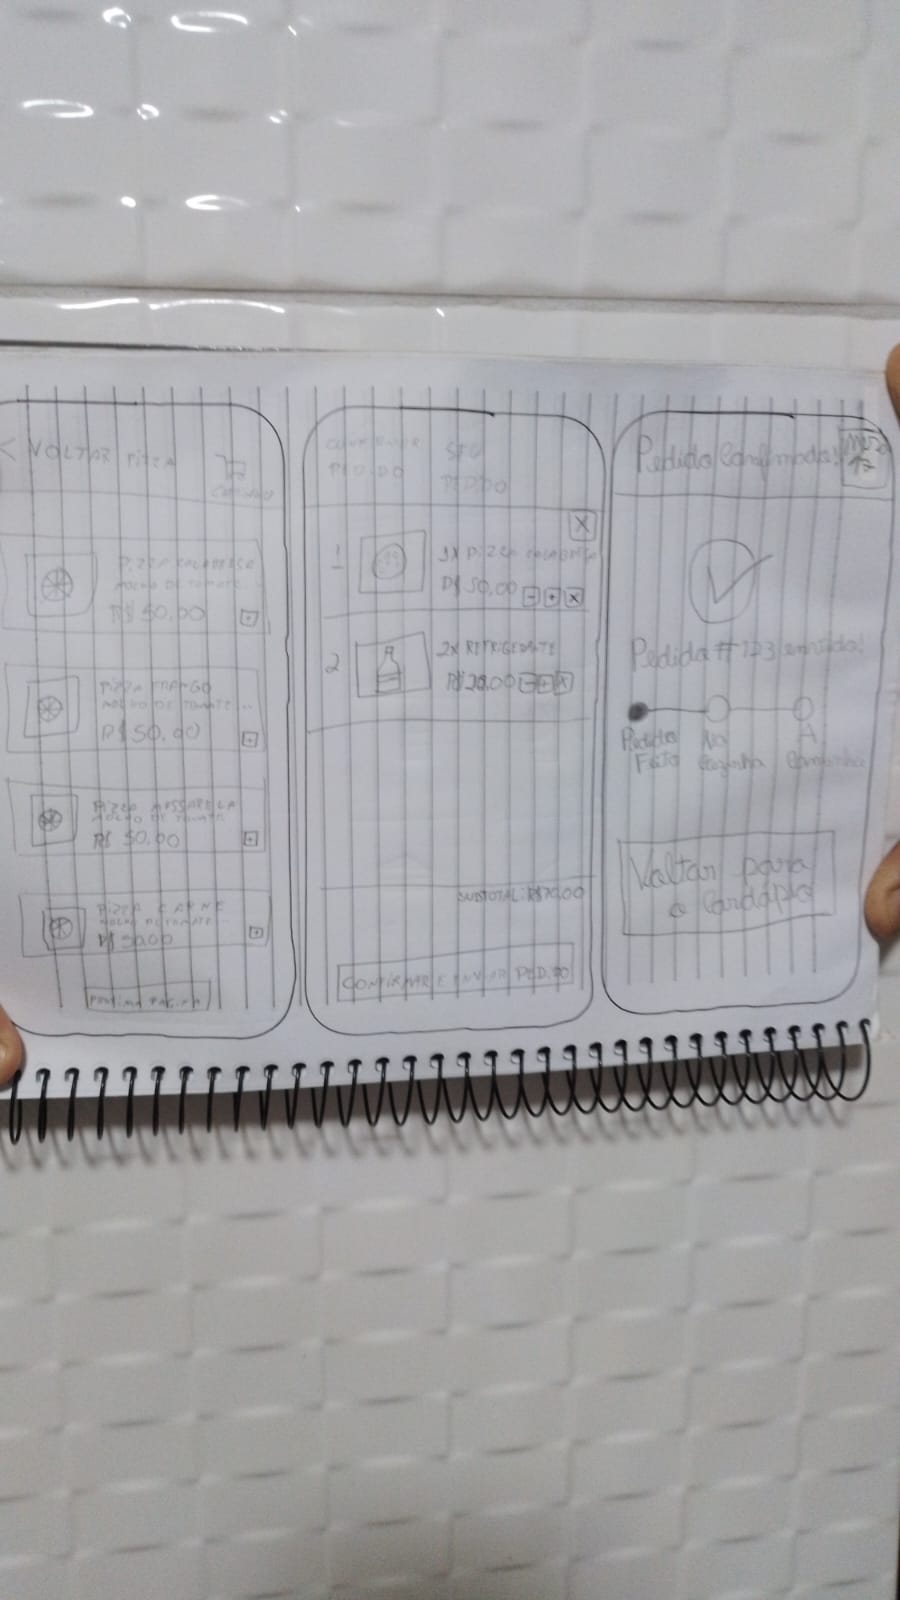 < VOLTAR PIZZA
CARRINHO
PIZZA CALABRESA
MOLHO DE TOMATE...
R$ 50,00
+
PIZZA FRANGO
MOLHO DE TOMATE...
R$ 50,00
+
PIZZA MUSSARELA
MOLHO DE TOMATE
R$ 50,00
+
PIZZA CARNE
MOLHO DE TOMATE...
R$ 50,00
+
PROXIMA PAGINA
CONFIRMAR SEU
PEDIDO PEDIDO
X
1 1X PIZZA CALABRESA
R$ 50,00 - + X
2 2X REFRIGERANTE
R$ 20,00 - + X
SUBTOTAL: R$70,00
CONFIRMAR E ENVIAR PEDIDO
Pedido Confirmado! Mesa
12
Pedido #123 enviado!
Pedido No A
Feito Cozinha Caminho
Voltar para
o Cardápio